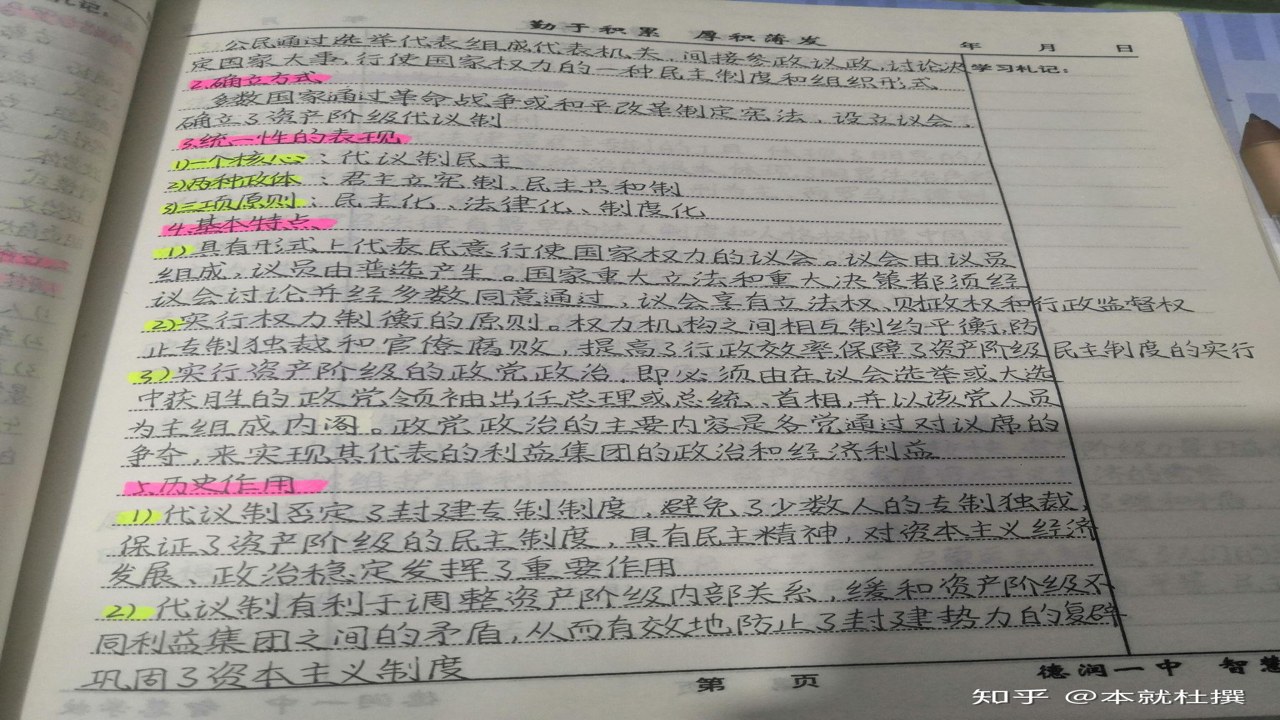 勤于积累 厚积薄发
年 月 日
学习札记：
公民通过选举代表组成代表机关，间接参政议政，讨论决
定国家大事，行使国家权力的一种民主制度和组织形式
2.确立方式
多数国家通过革命战争或和平改革制定宪法，设立议会，
确立了资产阶级代议制
3.统一性的表现
1)一个核心：代议制民主
2)两种政体：君主立宪制、民主共和制
3)三项原则：民主化、法律化、制度化
4.基本特点
1)具有形式上代表民意行使国家权力的议会。议会由议员
组成，议员由普选产生。国家重大立法和重大决策都须经
议会讨论并经多数同意通过，议会享有立法权、财政权和行政监督权
2)实行权力制衡的原则。权力机构之间相互制约平衡，防
止专制独裁和官僚腐败，提高了行政效率，保障了资产阶级民主制度的实行
3)实行资产阶级的政党政治，即必须由在议会选举或大选
中获胜的政党领袖出任总理或总统、首相，并以该党人员
为主组成内阁。政党政治的主要内容是各党通过对议席的
争夺，来实现其代表的利益集团的政治和经济利益
5.历史作用
1)代议制否定了封建专制制度，避免了少数人的专制独裁，
保证了资产阶级的民主制度，具有民主精神，对资本主义经济
发展、政治稳定发挥了重要作用
2)代议制有利于调整资产阶级内部关系，缓和资产阶级不
同利益集团之间的矛盾，从而有效地防止了封建势力的复辟
巩固了资本主义制度
第 页
德润一中 智慧
知乎 @本就杜撰